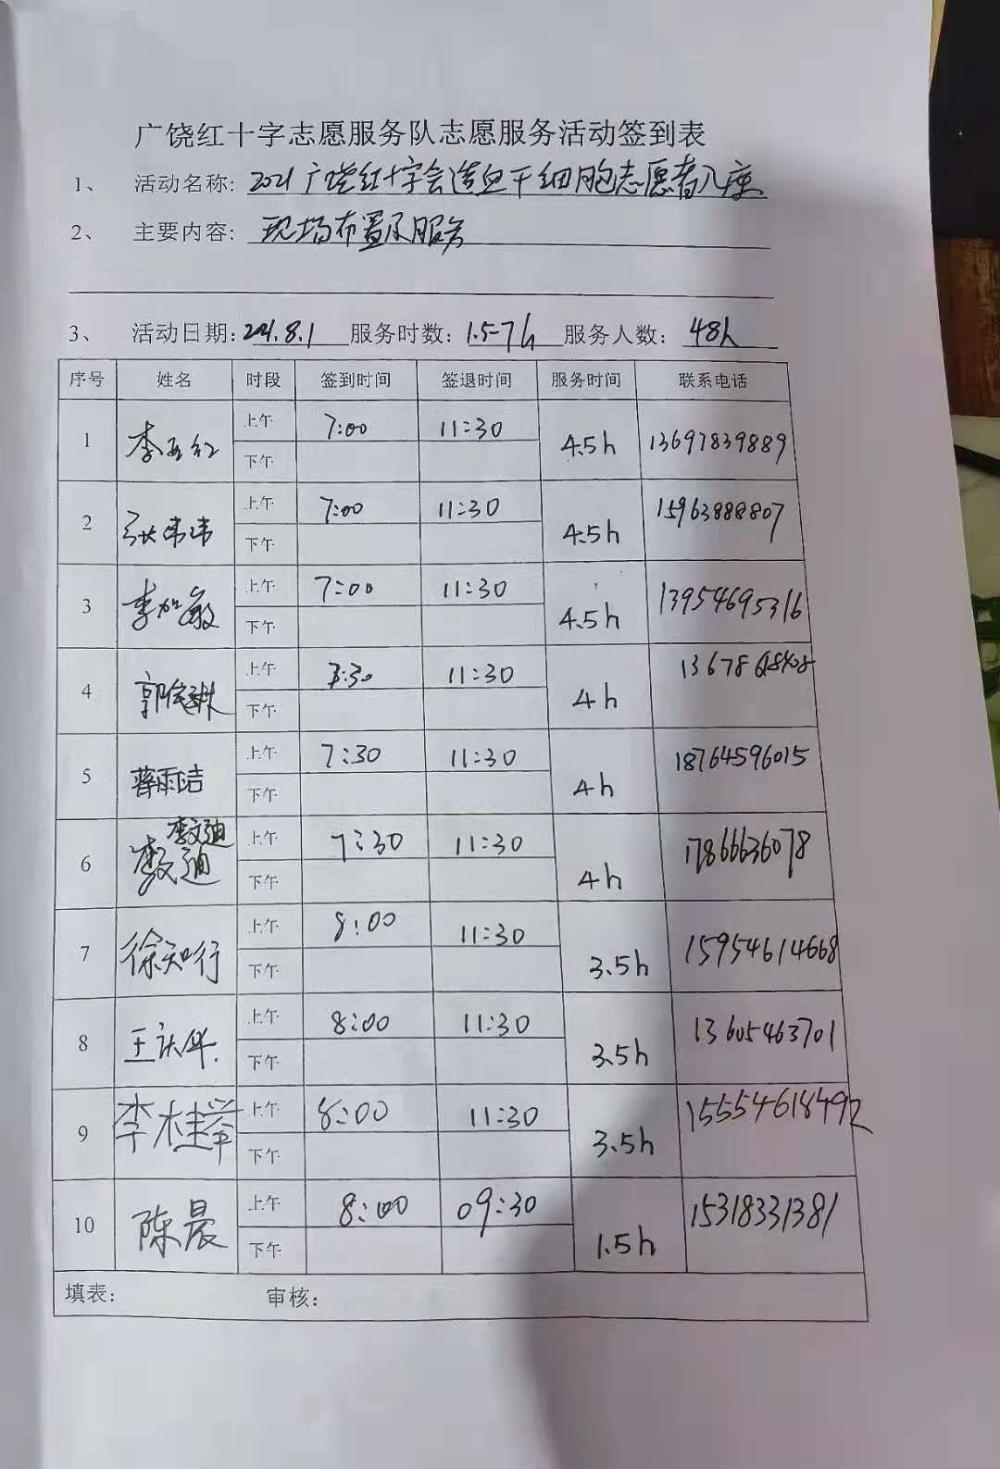 广饶红十字志愿服务队志愿服务活动签到表
1、 活动名称: 2021广饶红十字会造血干细胞志愿者入库
2、 主要内容: 现场布置及服务
3、 活动日期: 2021.8.1 服务时数: 1.5-7h 服务人数: 48h
序号 姓名 时段 签到时间 签退时间 服务时间 联系电话
1 李 红 上午 7:00 11:30 4.5h 13697839889
下午
2 张沛沛 上午 7:00 11:30 4.5h 15963888807
下午
3 李加敏 上午 7:00 11:30 4.5h 13954695316
下午
4 郭 琳 上午 7:30 11:30 4h
下午
5 蒋雨洁 上午 7:30 11:30 4h 18764596015
下午
李文迪
6 李文迪 上午 7:30 11:30 4h 17866636078
下午
7 徐知行 上午 8:00 11:30 3.5h 15954614668
下午
8 王庆华 上午 8:00 11:30 3.5h 13605463701
下午
9 李桂举 上午 8:00 11:30 3.5h 15554618492
下午
10 陈晨 上午 8:00 09:30 1.5h 15318331381
下午
填表: 审核: